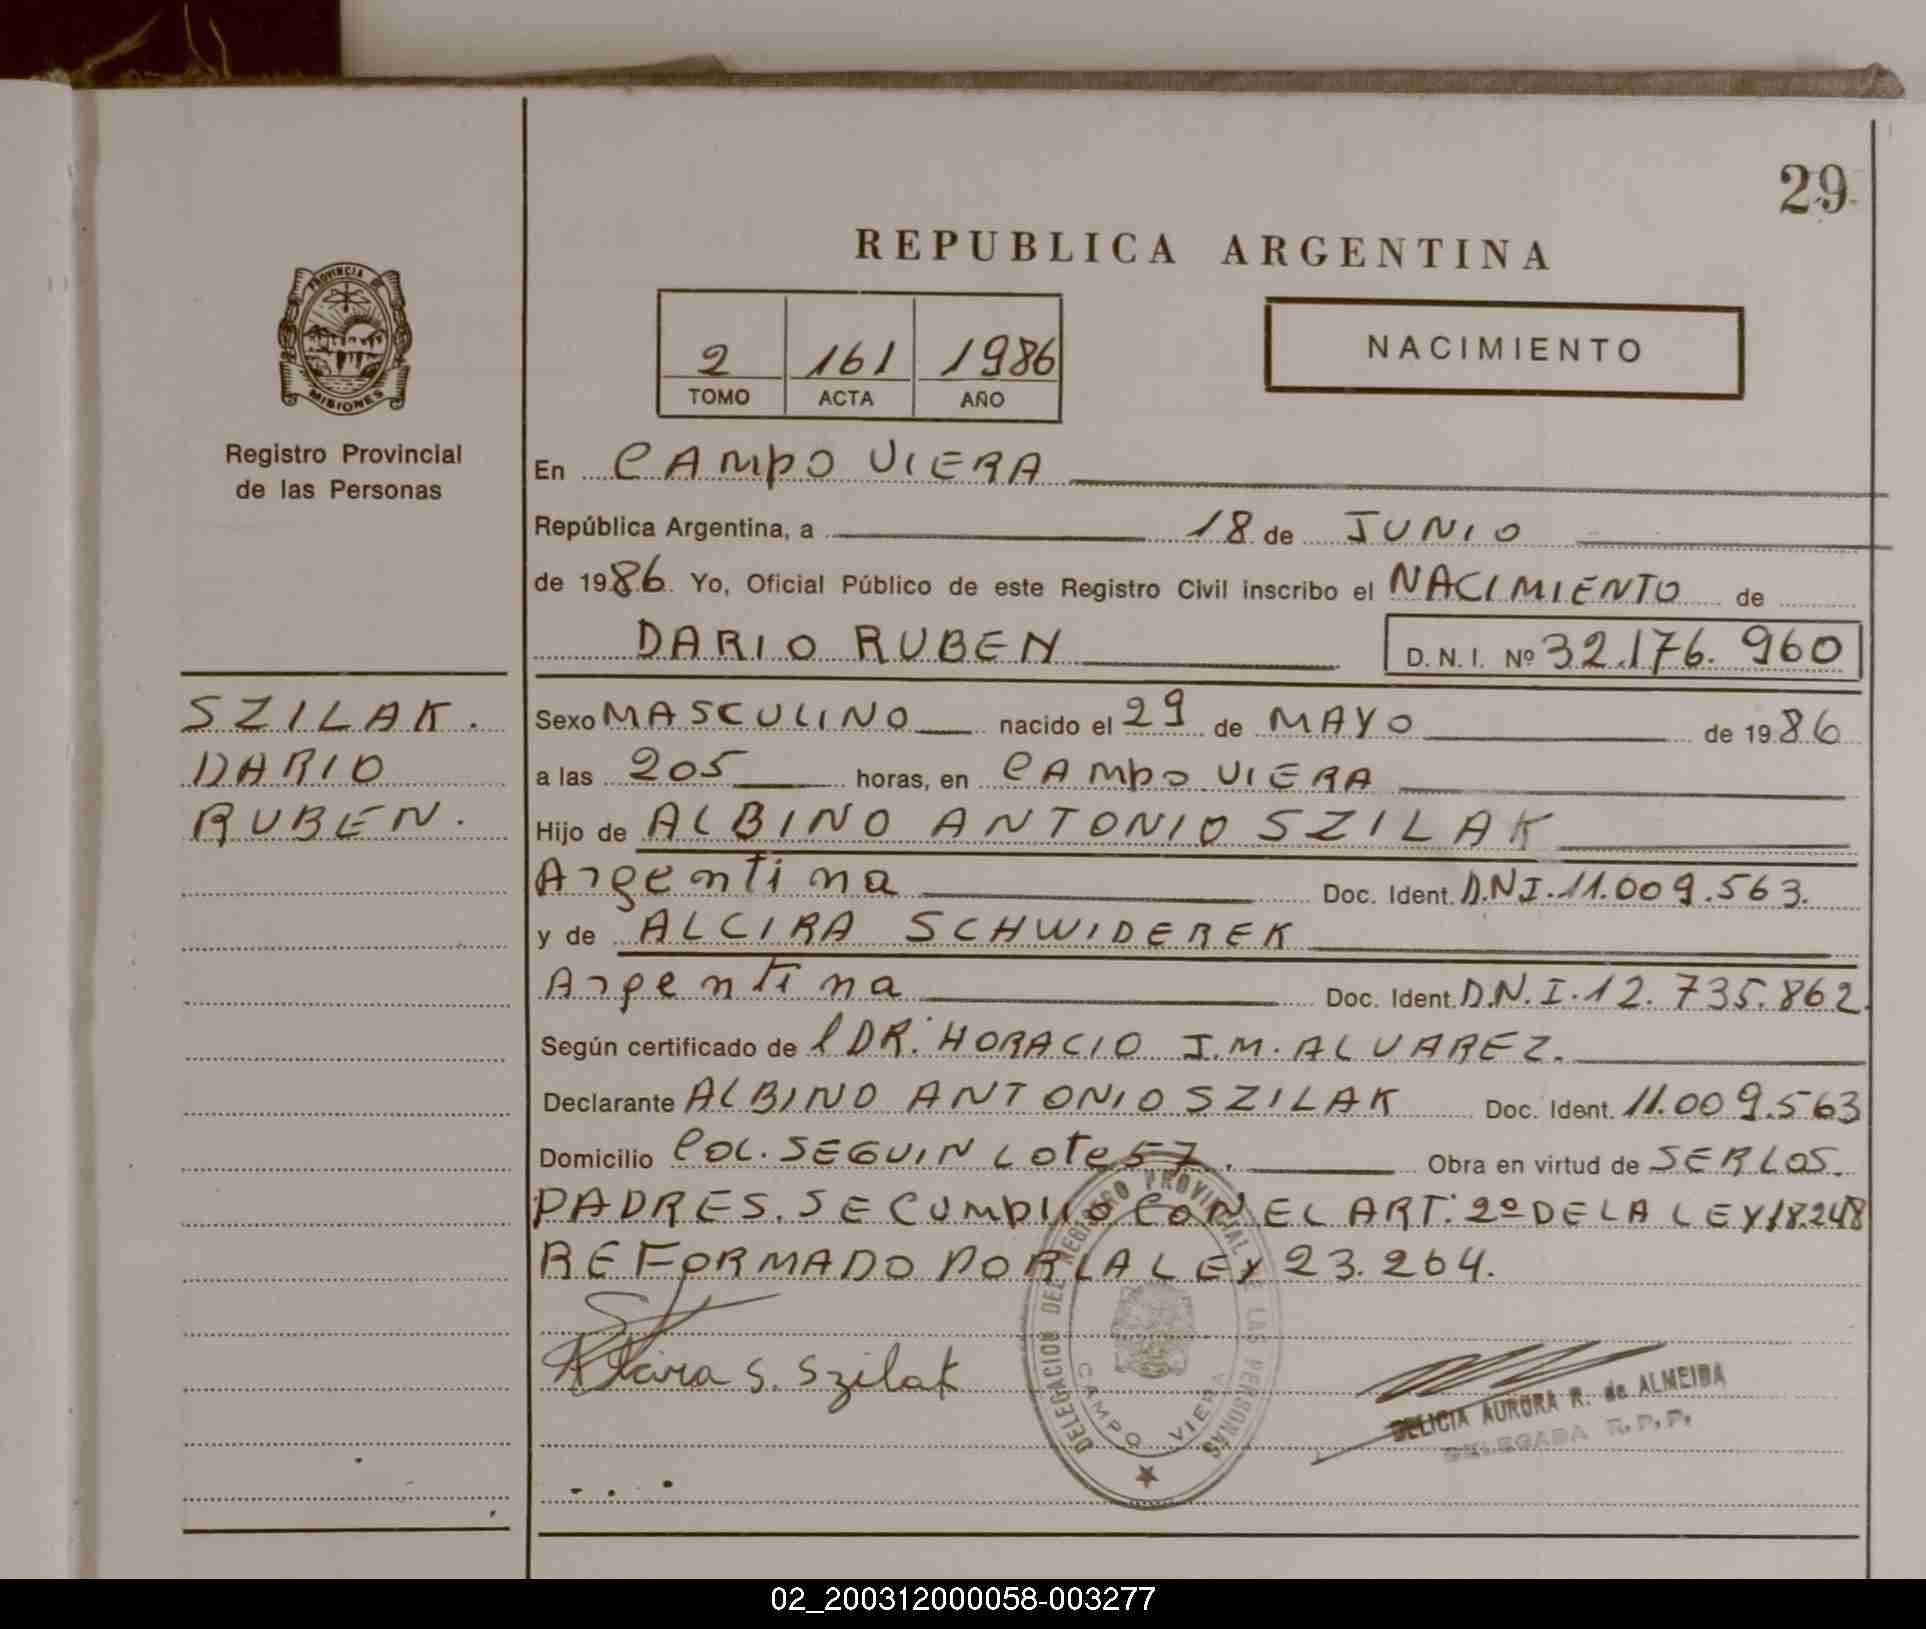 29
REPUBLICA ARGENTINA
PROVINCIA DE
MISIONES
Registro Provincial
de las Personas
2 161 1986
TOMO ACTA AÑO
NACIMIENTO
En CAMPO VIERA
República Argentina, a 18 de JUNIO
de 1986. Yo, Oficial Público de este Registro Civil inscribo el NACIMIENTO de
DARIO RUBEN D. N. I. Nº 32.176.960
SZILAK.
DARIO
RUBEN.
Sexo MASCULINO nacido el 29 de MAYO de 1986
a las 205 horas, en CAMPO VIERA
Hijo de ALBINO ANTONIO SZILAK
Argentina Doc. Ident. D.N.I. 11.009.563.
y de ALCIRA SCHWIDEREK
Argentina Doc. Ident. D.N.I. 12.735.862.
Según certificado de l DR. HORACIO J.M. ALVAREZ.
Declarante ALBINO ANTONIO SZILAK Doc. Ident. 11.009.563
Domicilio COL. SEGUIN LOTE 57. Obra en virtud de SER LOS
PADRES. SE CUMPLIO CON EL ART. 2º DE LA LEY 18.248
REFORMADO POR LA LEY 23.264.
Alcira S. Szilak
DELEGACION DEL REGISTRO PROVINCIAL DE LAS PERSONAS
CAMPO VIERA
DELICIA AURORA R. de ALMEIDA
DELEGADA R.P.P.
02_200312000058-003277